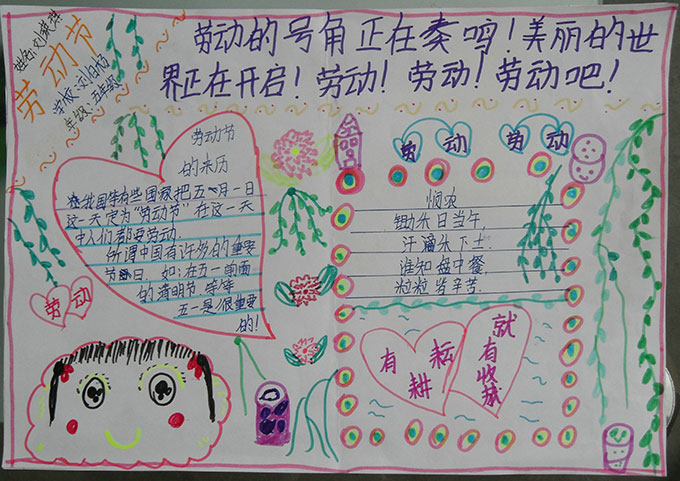 劳动节
年级：五年级
劳动的号角正在奏鸣！美丽的世
界正在开启！劳动！劳动！劳动吧！
劳动节
的来历
我国等有些国家把五月一日
这一天定为“劳动节”在这一天
中人们都要劳动
所谓中国有许多的重要
节日．如：在五一前面
的清明节．等等
五一是很重要
的！
劳动
劳动 劳动
悯农
锄禾日当午，
汗滴禾下土．
谁知盘中餐，
粒粒皆辛苦．
有耕耘
就有收获